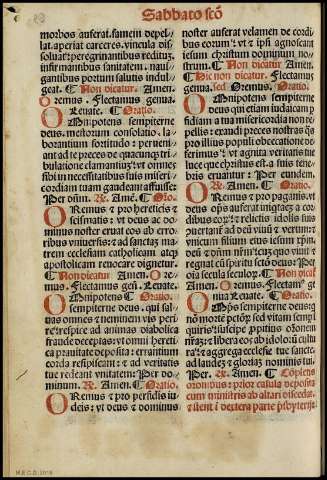 Sabbato sctō
morbos auferat. famem depel/
lat. aperiat carceres. vincula dis/
soluat: peregrinantibus reditus:
infirmantibus sanitatem. naui/
gantibus portum salutis indul/
geat. ¶ Non dicatur. Amen.
Oremus. Flectamus genua.
℟ Leuate. ¶ Oratio.
OMnipotens sempiterne
deus. mestorum consolatio. la/
borantium fortitudo: perueni/
ant ad te preces de quacunq; tri/
bulatione clamantiuȝ: vt omnes
sibi in necessitatibus suis miseri/
cordiam tuam gaudeant affuisse:
Per dñm. ℟. Amē. ¶ Oio.
ORemus & pro hereticis &
scismatis: vt deus ac do
minus noster eruat eos ab erro/
ribus vniuersis: & ad sanctaȝ ma
trem ecclesiam catholicam atqȝ
apostolicam reuocare dignetur.
¶ Non dicatur Amen. Ore
mus. Flectamus genū. Leuate.
OMnipotens ¶ Oratio.
sempiterne deus. qui sal/
uas omnes & neminem vis peri
re: respice ad animas diabolica
fraude deceptas: vt omni hereti
ca prauitate deposita: errantium
corda resipiscant: & ad veritatis
tue redeant vnitatem: Per do/
minum. ℟. Amen. ¶ Oratio.
OREmus & pro perfidis iu
deis: vt deus & dominus
noster auferat velamen de cordi
bus eorum: vt & ipsi agnoscant
iesum christum dominum no/
strum. ¶ Non dicatur. Amen.
¶ Hic non dicatur. Flectamus
genua. sed Oremus. Oratio.
OMnipotens sempiterne
deus qui etiam iudaicam per
fidiam a tua misericordia non re/
pellis: exaudi preces nostras qs̄
pro illius populi obcecatione de
ferimus: vt agnita veritatis tue
luce que christus est. a suis tene/
bris eruantur: Per eundem.
℟. Amen. ¶ Oratio.
OREmus & pro paganis. vt
deus oīps auferat iniqtateȝ a cor
dibus eorū: & relictis idolis suis
uertant̄ ad deū viuū & verum:
vnicum filium eius iesum xpm̄
deū & dñm nostrū: cum quo viuit &
regnat cū spiritu scto deus: Per
oīa secula seculoȝ. ¶ Non dicat̄
Amen. Oremus. Flectam⁹ ge
nua Leuate. ¶ Oratio.
OMps sempiterne deus q
nō morte petcōȝ sed vitam semp̄
quiris: suscipe ppitius orōnem
nraȝ: & libera eos ab idoloȝ cultu
ra: & aggrega ecclesie tue sancte.
ad laudeȝ & gloriaȝ nominis tui.
Per. ℟. Amen. ¶ Cōpletis
orationibus: prior casula deposita
cum ministris ab altari discedat.
& sedent ī dextera parte psbyterij.
M.E.C.D. 2016